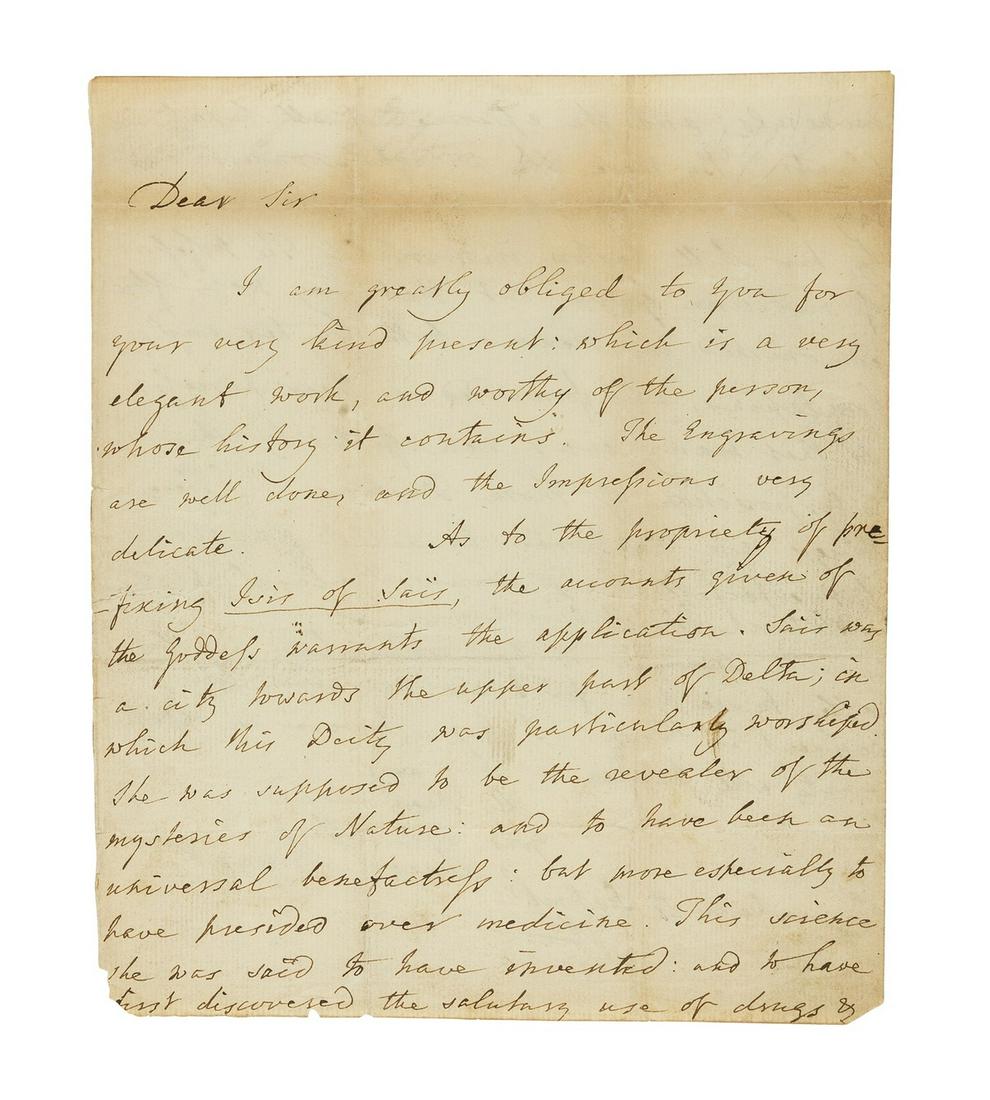 Dear Sir
I am greatly obliged to you for
your very kind present: which is a very
elegant work, and worthy of the person,
whose history it contains. The Engravings
are well done, and the Impreſsions very
delicate. As to the propriety of pre=
=fixing Isis of Saïs, the accounts given of
the Goddeſs warrants the application. Saïs was
a city towards the upper part of Delta; in
which this Deity was particularly worshiped.
She was supposed to be the revealer of the
mysteries of Nature: and to have been an
universal benefactreſs: but more especially to
have presided over medicine. This science
she was said to have invented: and to have
first discovered the salutary use of drugs &